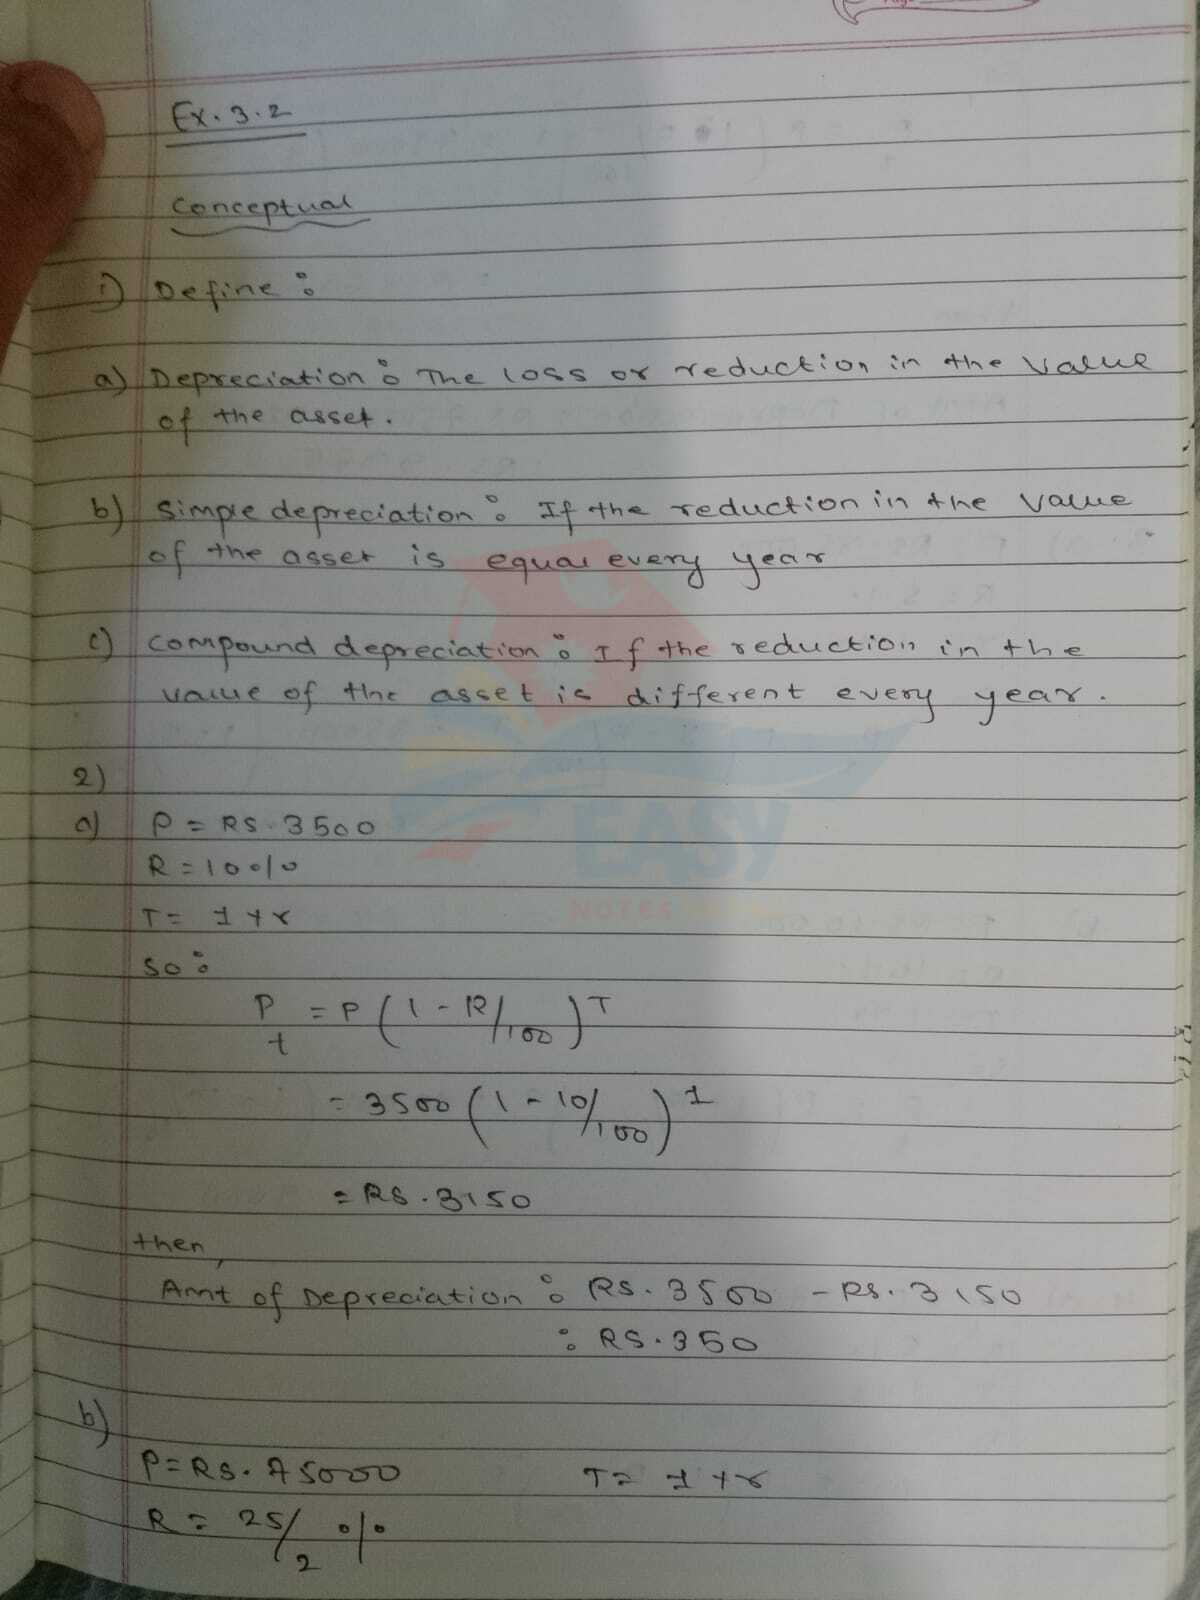 Ex. 3.2
Conceptual
1) Define :
a) Depreciation : The loss or reduction in the value
of the asset.
b) Simple depreciation : If the reduction in the value
of the asset is equal every year
c) Compound depreciation : If the reduction in the
value of the asset is different every year.
2)
a) P = RS. 3500
R = 10%
T = 1 yr
so :
P = P (1 - R/100)^T
t
= 3500 (1 - 10/100)^1
= RS. 3150
then,
Amt of Depreciation : RS. 3500 - RS. 3150
: RS. 350
b)
P = RS. 75000 T = 1 yr
R = 25/2 %
EASY
NOTES